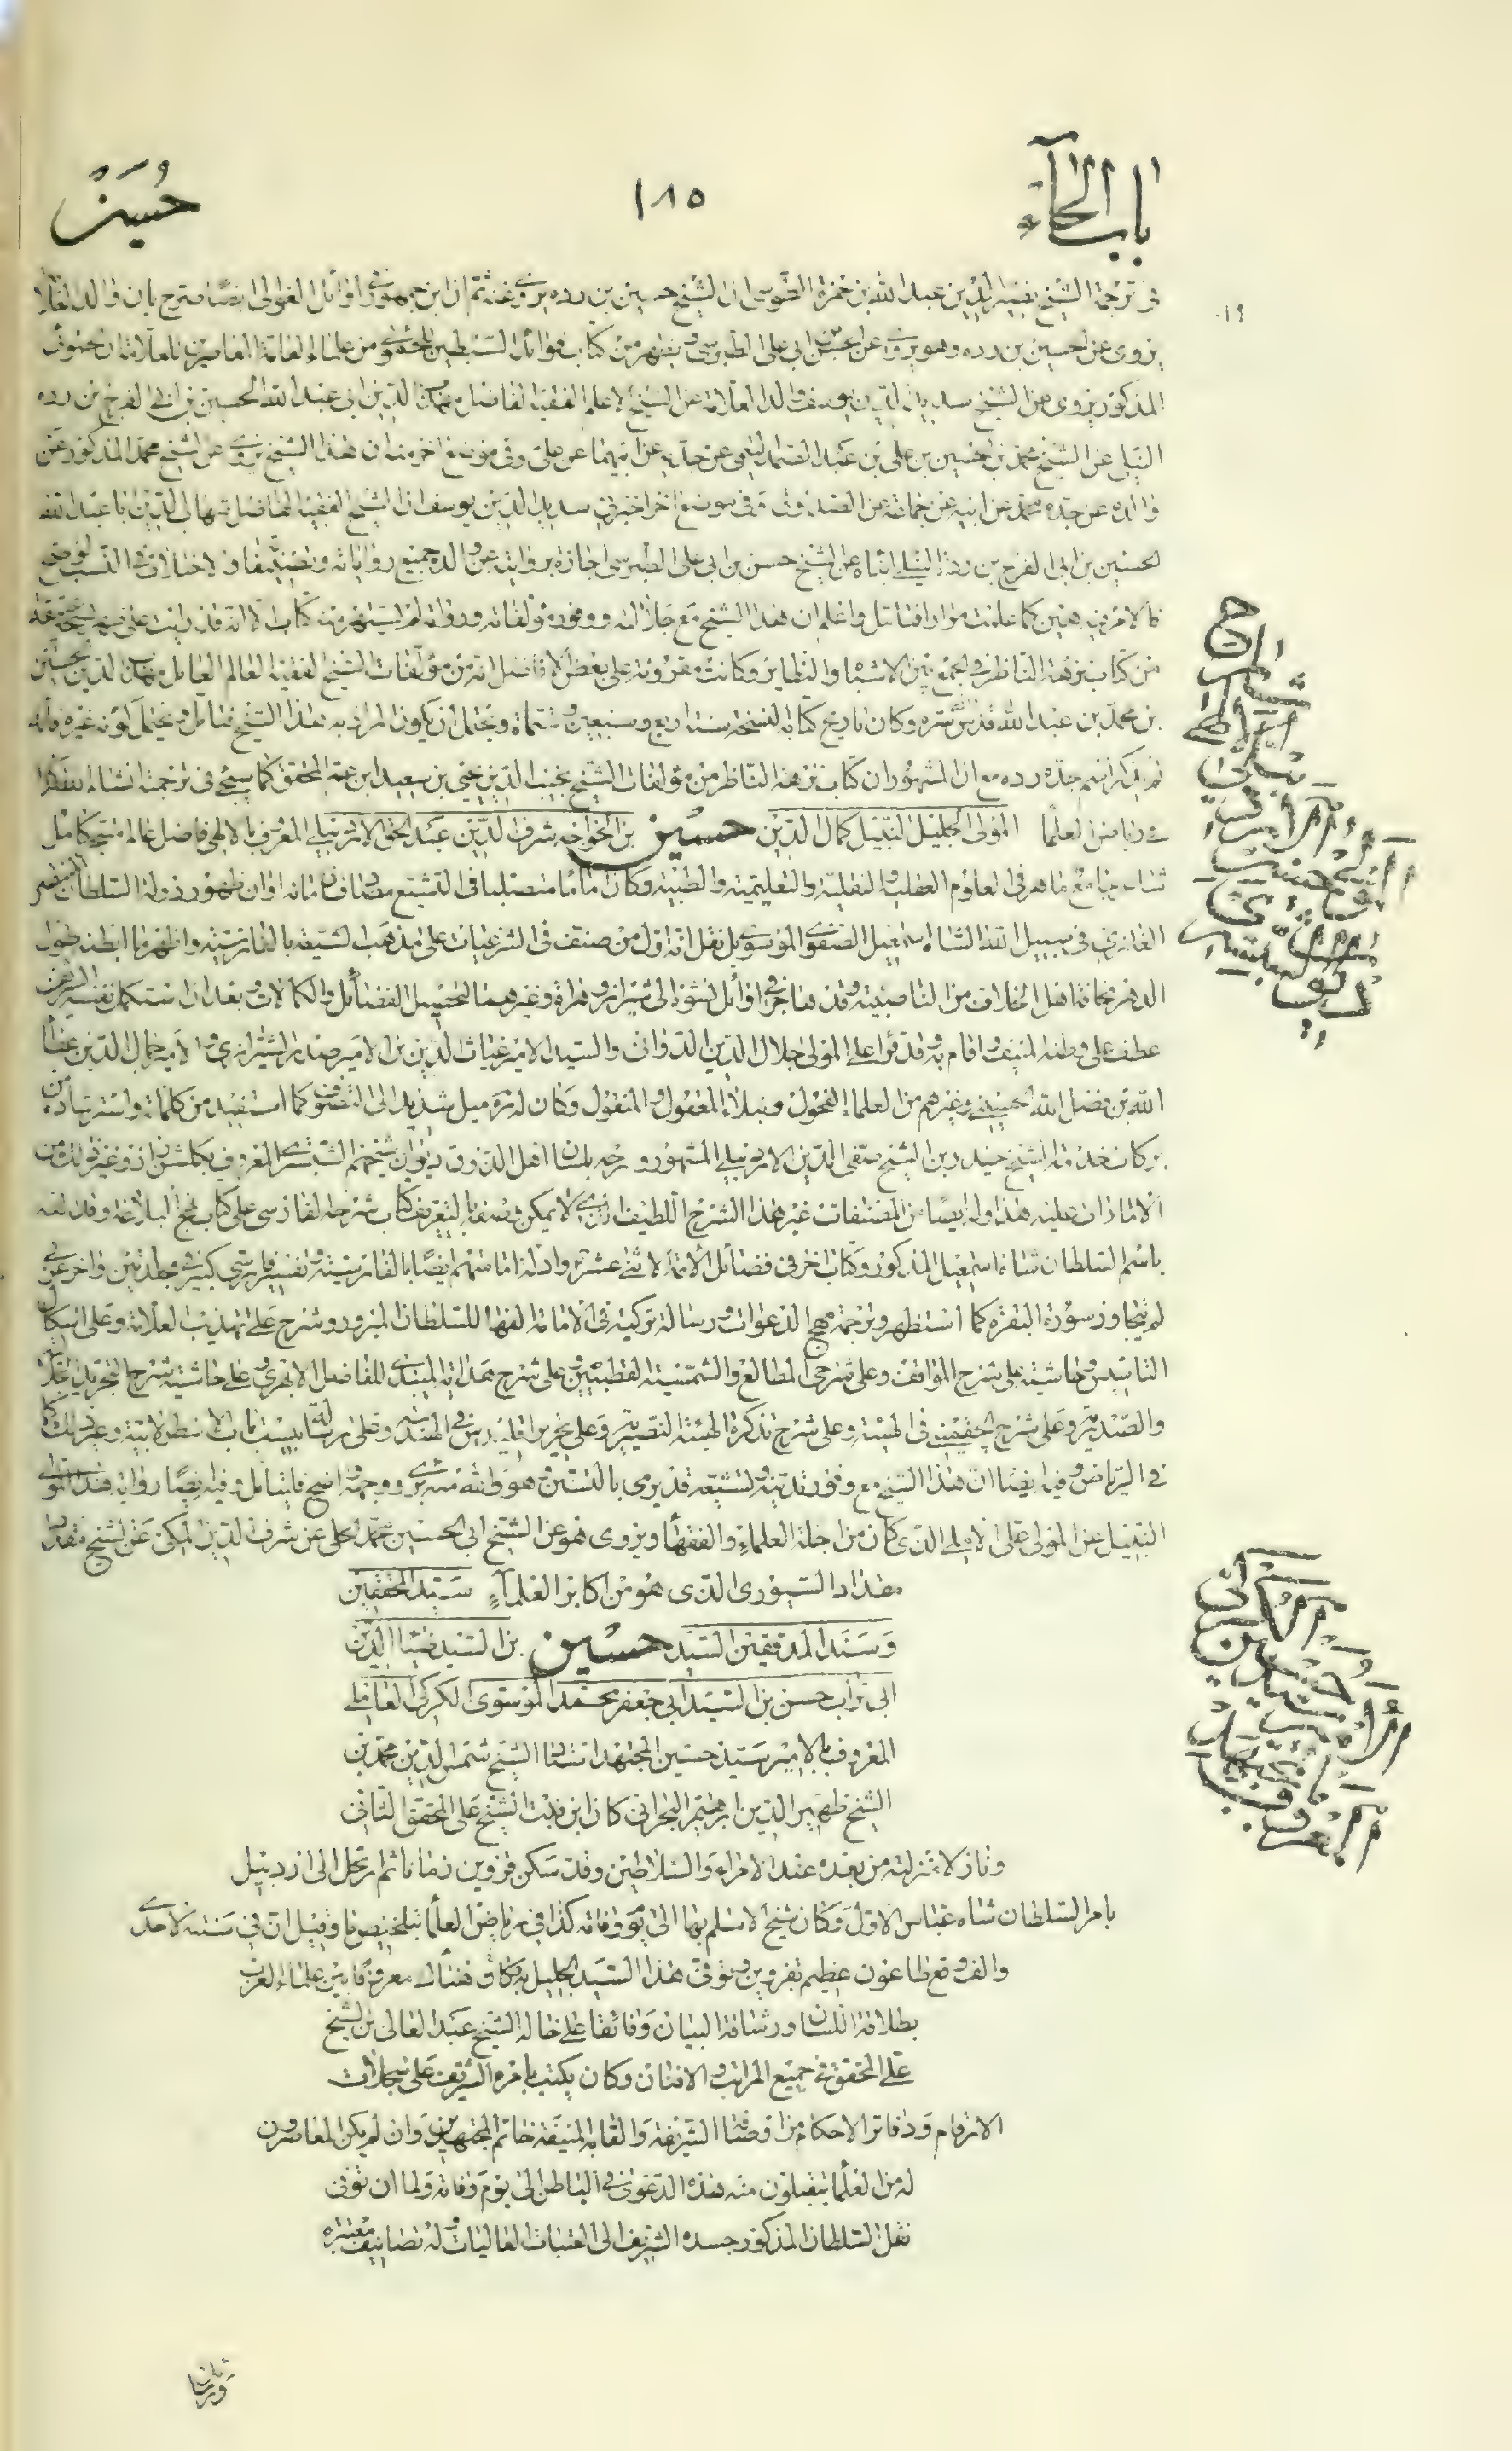 باب الحآء
١٨٥
حُسَين
في ترجمة الشيخ نصير الدين عبد الله بن حمزة الطوسي ان الشيخ حسين بن رده يروي عنه ثم ان ابن جمهور في اوائل الغوالي ايضا صرح بان والد العلامة
يروي عن الحسين بن رده وهو يروي عن الحسن بن ابي علي الطبرسي ويظهر من كتاب فرائد السبطين للحموي من علماء العامة المعاصرين للعلامة ان الحموي
المذكور يروي عن الشيخ سديد الدين يوسف والد العلامة عن الشيخ الاعلم الفقيه الفاضل مهذب الدين ابي عبد الله الحسين بن ابي الفرج بن رده
النيلي عن الشيخ محمد بن الحسين بن علي بن عبد الصمد التميمي عن جده عن ابيهما عن علي وفي موضع اخر منه ان هذا الشيخ يروي عن الشيخ محمد المذكور عن
والده عن جده محمد عن ابيه عن جماعة عن الصدوق وفي موضع اخر اخبرني سديد الدين يوسف انا الشيخ الفقيه الفاضل شهاب الدين ابا عبد الله
الحسين بن ابي الفرج بن رده النيلي انباه عن الشيخ حسن بن ابي علي الطبرسي اجازة بروايته عن والده جميع رواياته وتصنيفه ولا اختلاف في النسب
فالامر في هين كما علمت مرارا فتامل واعلم ان هذا الشيخ مع جلالته ووفور مؤلفاته ورواته لم يشتهر منه كتاب الا انه قد رايت على ظهر نسخة عتيقة
من كتاب نزهة الناظر في الجمع بين الاشباه والنظاير وكانت مقروئة على بعض الافاضل انه من مؤلفات الشيخ الفقيه العالم العامل مهذب الدين الحسين
بن محمد بن عبد الله قدس سره وكان تاريخ كتابة النسخة سنة اربع وسبعين وستمائة ويحتمل ان يكون المراد به هذا الشيخ فتامل ويحتمل كونه غيره فانه
لم يذكر اسم جده رده مع ان المشهور ان كتاب نزهة الناظر من مؤلفات الشيخ نجيب الدين يحيى بن سعيد ابن عم المحقق كما سيجئ في ترجمته انشاء الله
في رياض العلما المولى الجليل النبيل كمال الدين حسين بن الخواجه شرف الدين عبد الحق الاردبيلي المعروف بالالهي فاضل عالم متبحر كامل
شاعر جامع ماهر في العلوم العقلية والنقلية والتعليمية والطبية وكان اماما متصلبا في التشيع زمانه اوان ظهور دولة السلطان
الغازي في سبيل الله الشاه اسمعيل الصفوي الموسوي بل نقل انه اول من صنف في الشرعيات على مذهب الشيعة بالفارسية واظهر ما ابطنه طول
الدهر مخافة اهل الخلاف من الناصبية وقد هاجر في اوائل نشوه الى شيراز وهراة وغيرهما لتحصيل الفضائل والكمالات وبعد ان استكمل نفسه الشريف
عطف على وطنه المنيف واقام به وقد قرأ على المولى جلال الدين الدواني والسيد الامير غياث الدين بن الامير صدر الشيرازي والامير جمال الدين عطاء
الله بن فضل الله الحسيني وغيرهم من العلماء الفحول ونبلاء المعقول والمنقول وكان له ره ميل شديد الى التصوف كما استفيد من كلماته واسترشاده من
بركات خدمة الشيخ حيدر بن الشيخ صفي الدين الاردبيلي المشهور و شرحه بلسان اهل الذوق ديوان شيخهم الشبستري المعروف بكلشن راز وغير ذلك من
الامارات عليه هذا وله ايضا من المصنفات غير هذا الشرح اللطيف الذي لا يمكن وصفه بالتعريف كتاب شرحه الفارسي على كتاب نهج البلاغة وقد الفه
باسم السلطان شاه اسمعيل المذكور وكتاب اخر في فضائل الائمة الاثني عشر وادلة امامتهم ايضا بالفارسية وتفسير فارسي كبير في مجلدتين واخر عربي
لم يتجاوز سورة البقرة كما استظهر وترجمة مهج الدعوات ورسالة تركية في الامامة الفها للسلطان المزبور وشرح على تهذيب العلامة وعلى اشكال
التاسيس وحاشية على شرح المواقف وعلى شرحي المطالع والشمسية القطبيين وعلى شرح هداية الميبدي للقاضل الابهري وعلى حاشية شرح التجريد
والصدرية وعلى شرح الچغميني في الهيئة وعلى شرح تذكرة الهيئة النصيرية وعلى تحرير اقليدس في الهندسة وعلى رسالة بيست باب الاسطرلابية وغير ذلك
في الرياض وفيه ايضا ان هذا الشيخ مع وفور تدينه وتشيعه قد يرمى بالتسنن وهو والله منه بري ووجهه واضح فليتامل وفيه ايضا رواية هذا المولى
النبيل عن المولى علي الاملي الذي كان من اجلة العلماء والفقهاء ويروي هو عن الشيخ ابي الحسين محمد الحلي عن شرف الدين المكي عن الشيخ مقداد
مقداد السيوري الذي هو من اكابر العلمآء سيد المحققين
وسند المدققين السيد حسين بن السيد ضياء الدين
ابي تراب حسن بن السيد ابي جعفر محمد الموسوي الكركي العاملي
المعروف بالامير سيد حسين المجتهد الشيخ شمس الدين محمد بن
الشيخ ظهير الدين ابرهيم البحراني كان ابن بنت الشيخ علي المحقق الثاني
ونازلا منزلته من بعده عند الامراء والسلاطين وقد سكن قزوين زمانا ثم ارتحل الى اردبيل
بامر السلطان شاه عباس الاول وكان شيخ الاسلام بها الى يوم وفاته كذا في رياض العلما بتلخيص ما وقيل ان في سنة الاحدى
والف وقع طاعون عظيم بقزوين وتوفي هذا السيد الجليل به كان هناك معروفا بين علماء العرب
بطلاقة اللسان ورشاقة البيان وفائقا على خاله الشيخ عبد العالي بن الشيخ
علي المحقق في جميع المراتب والافنان وكان يكتب بامره الشريف على سجلات
الارقام ودفاتر الاحكام من اوصافه الشريفة والقابه المنيفة خاتم المجتهدين وان لم يكن المعاصرون
له من العلما يتقبلون منه هذه الدعوى في الباطن الى يوم وفاته ولما ان توفي
نقل السلطان المذكور جسده الشريف الى العتبات العاليات وله تصانيف معتبره